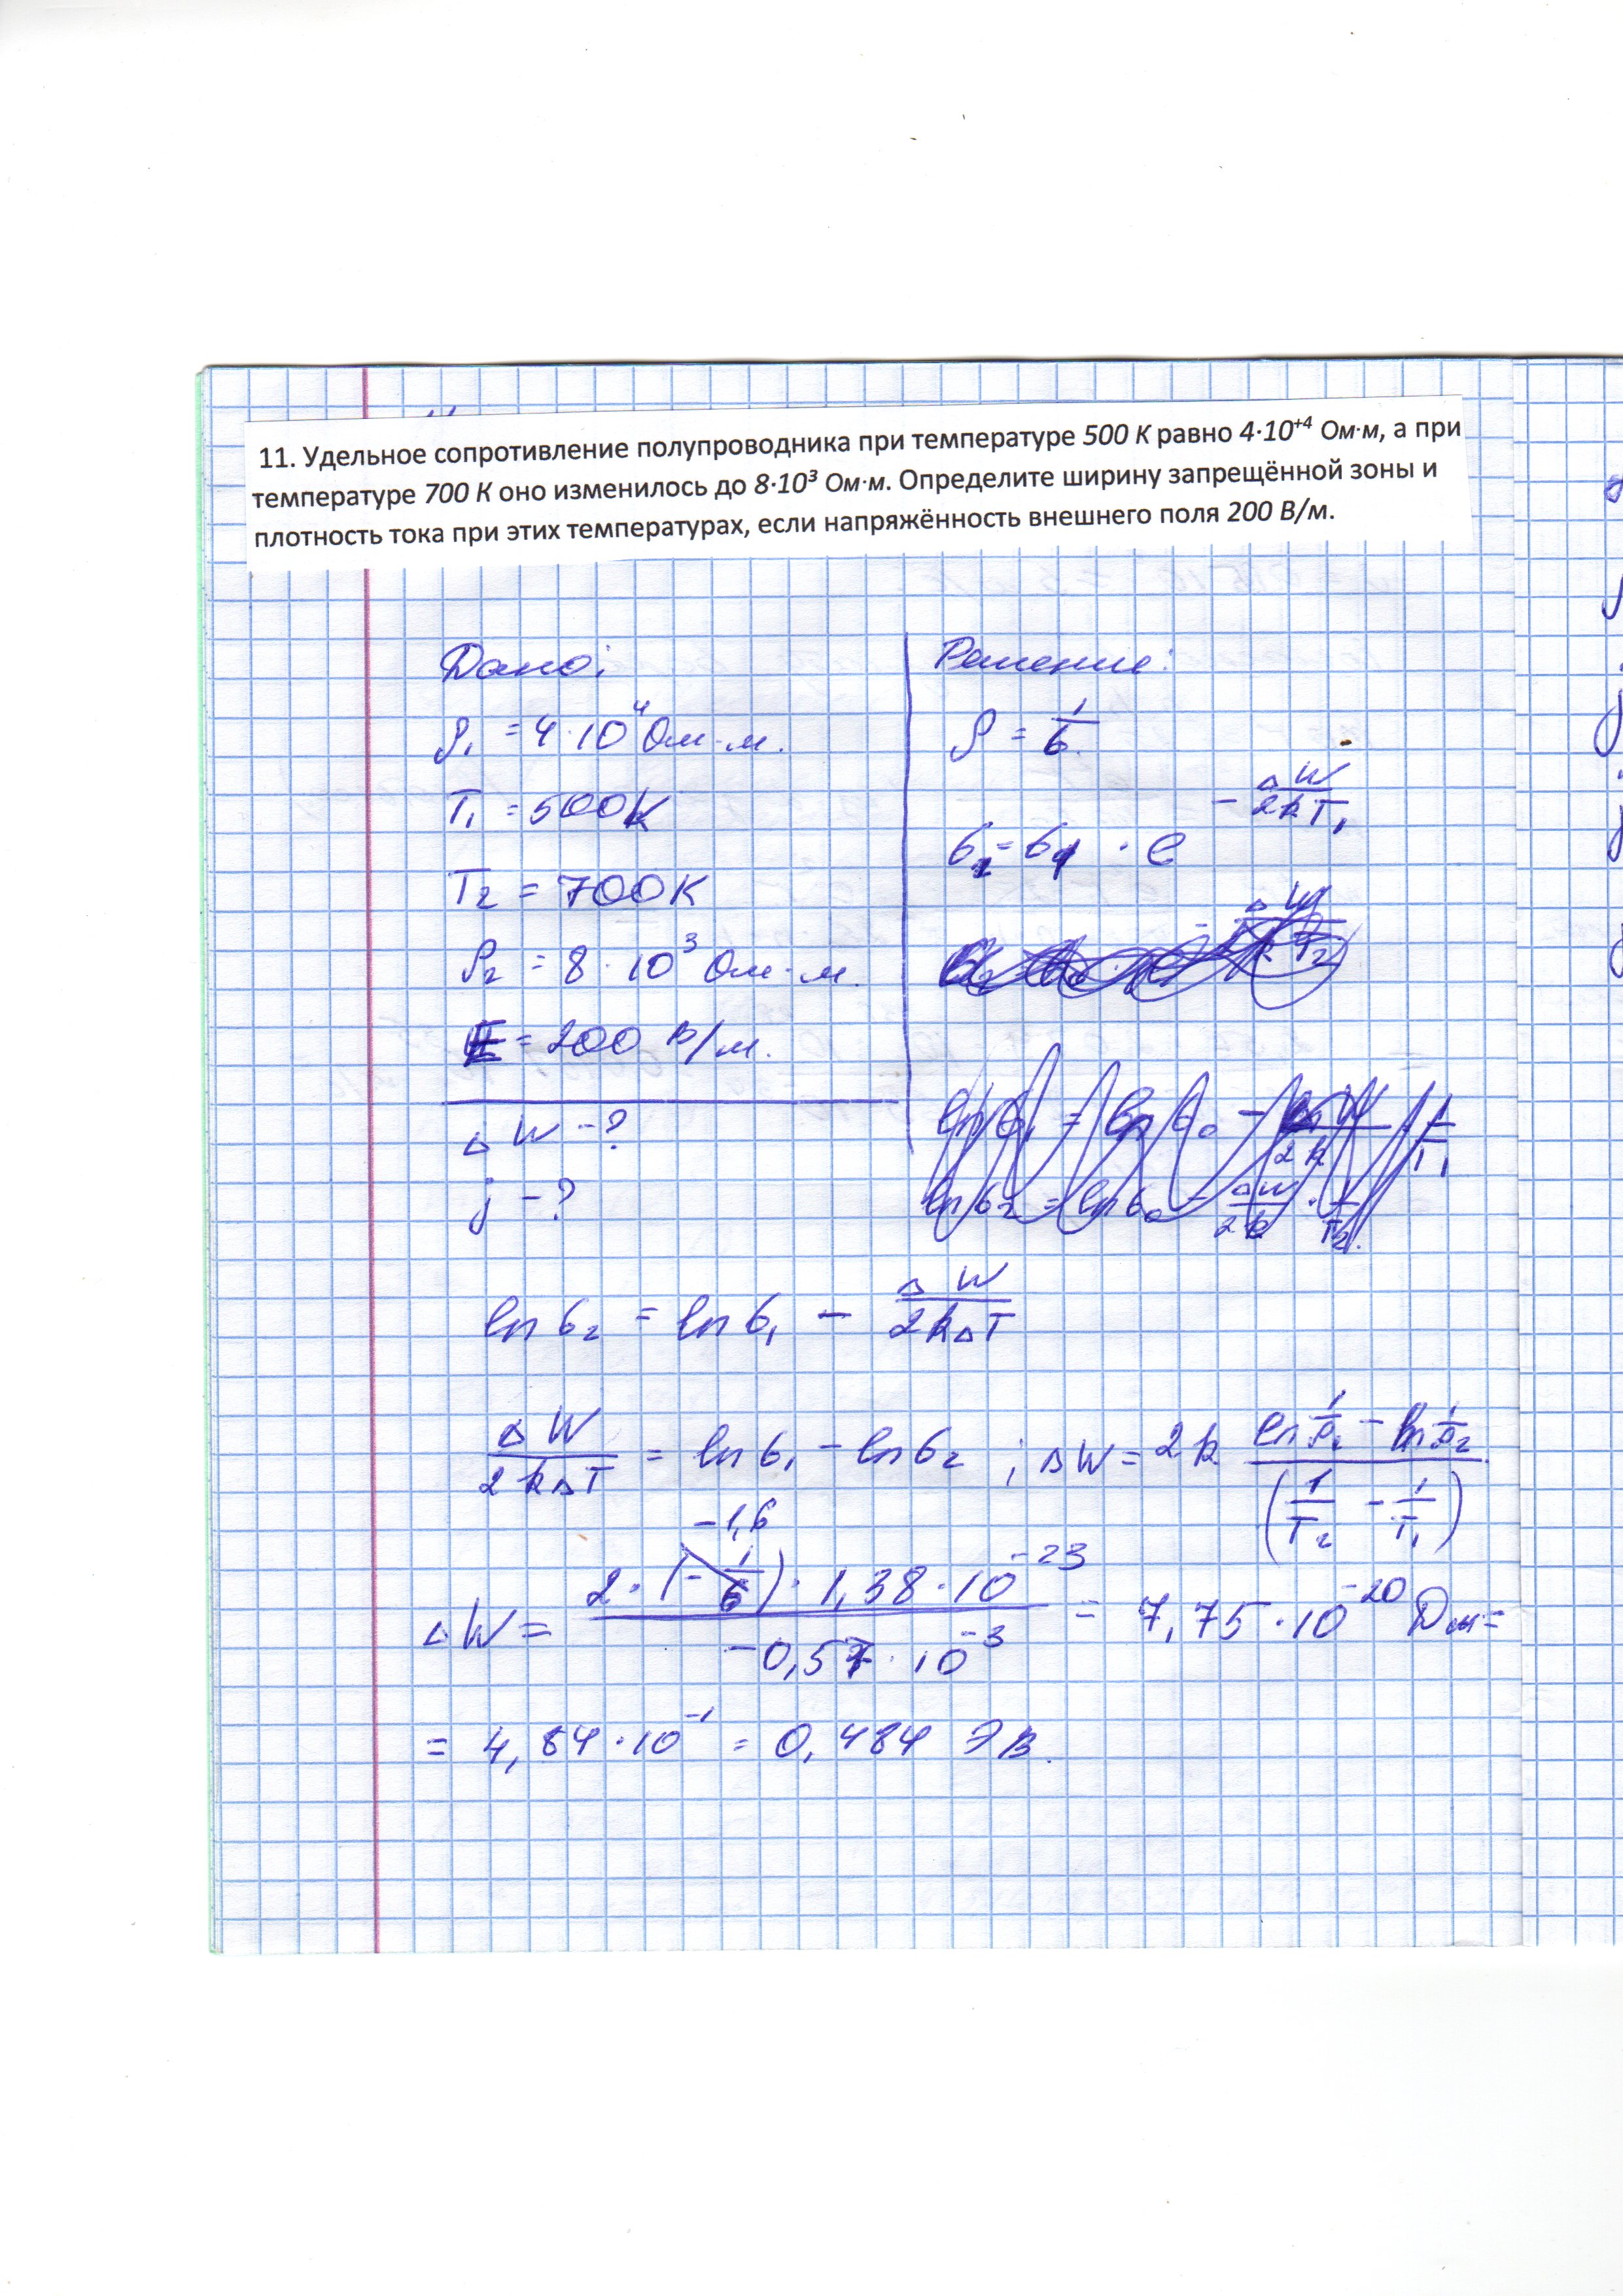 11. Удельное сопротивление полупроводника при температуре 500 К равно 4·10⁺⁴ Ом·м, а при
температуре 700 К оно изменилось до 8·10³ Ом·м. Определите ширину запрещённой зоны и
плотность тока при этих температурах, если напряжённость внешнего поля 200 В/м.
Дано:
ρ₁ = 4·10⁴ Ом·м.
T₁ = 500К
T₂ = 700К
ρ₂ = 8·10³ Ом·м.
E = 200 В/м.
ΔW - ?
j - ?
Решение:
ρ = 1/б.
б₂ = б₁ · e^(-ΔW/2kT₁)
ln б₂ = ln б₁ - ΔW/2kΔT
ΔW/2kΔT = ln б₁ - ln б₂ ; ΔW = 2k (ln 1/ρ₁ - ln 1/ρ₂)/(1/T₂ - 1/T₁)
-1,6
ΔW = 2·(-1/6)·1,38·10⁻²³/-0,57·10⁻³ = 7,75·10⁻²⁰ Дж =
= 4,84·10⁻¹ = 0,484 эВ.